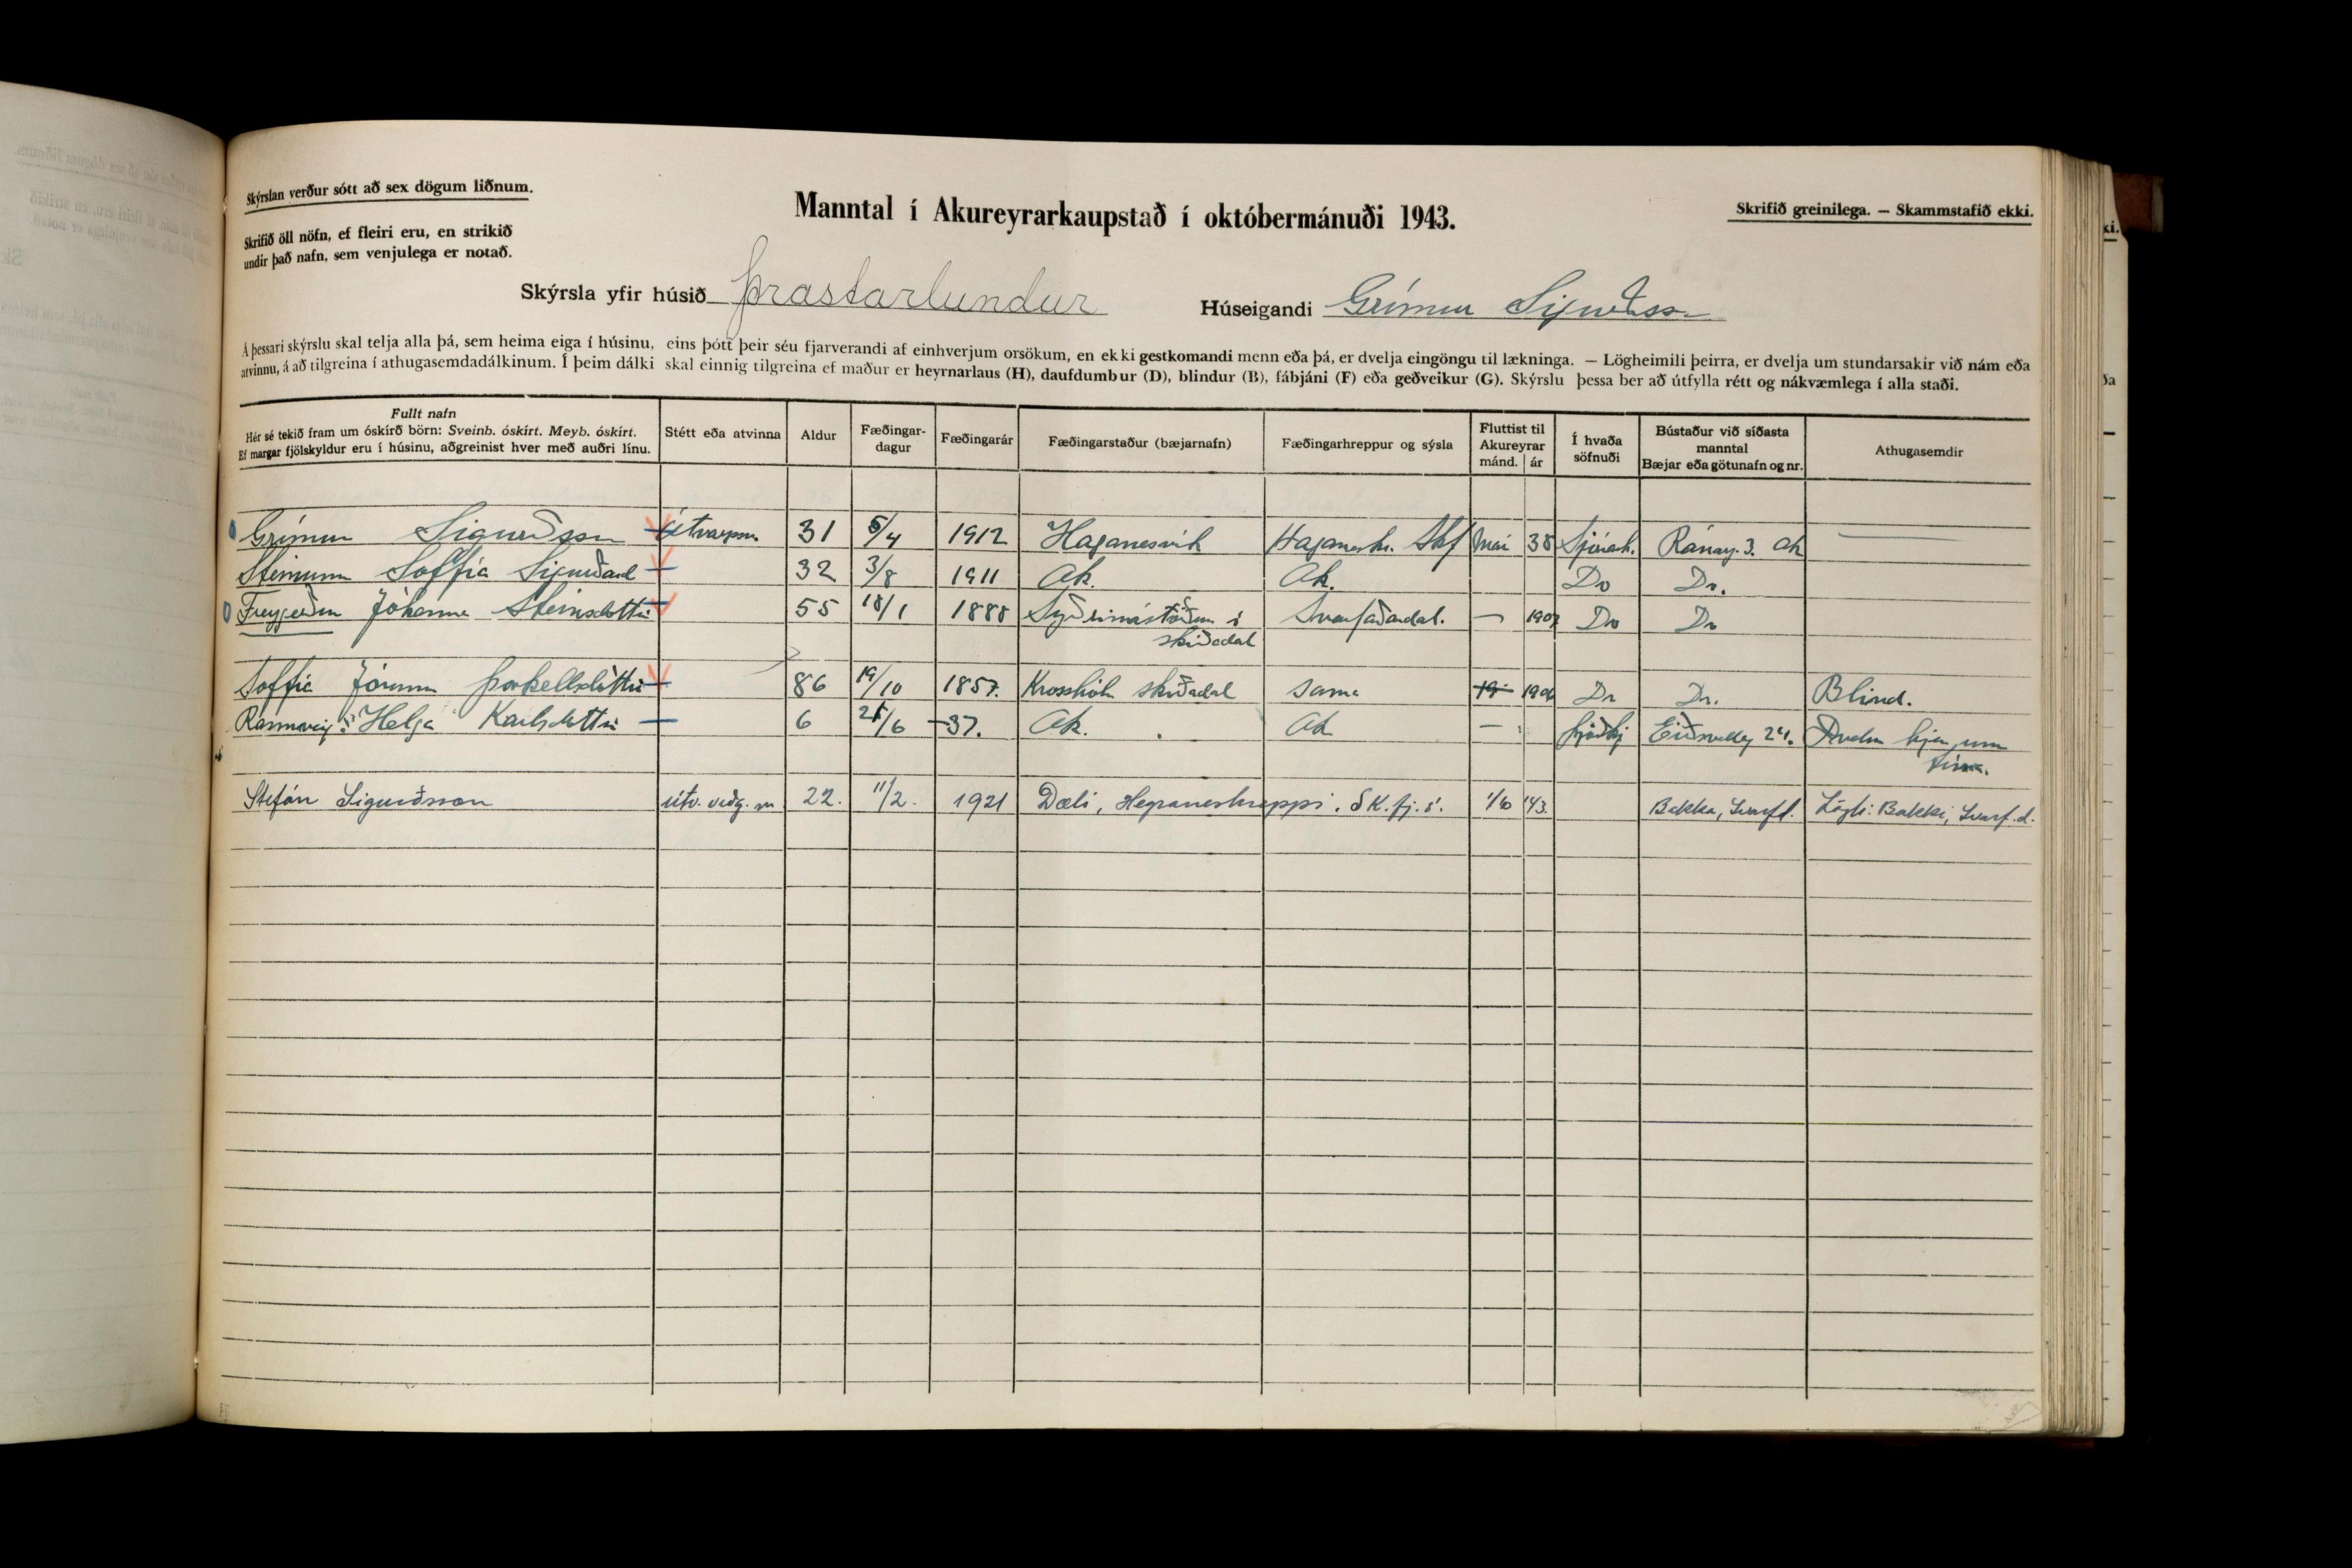 Skýrslan verður sótt að sex dögum liðnum.
Skrifið öll nöfn, ef fleiri eru, en strikið
undir það nafn, sem venjulega er notað.
Manntal í Akureyrarkaupstað í októbermánuði 1943.
Skrifið greinilega. — Skammstafið ekki.
Skýrsla yfir húsið Þrastarlundur Húseigandi Grímur Sigurðsson
Á þessari skýrslu skal telja alla þá, sem heima eiga í húsinu, eins þótt þeir séu fjarverandi af einhverjum orsökum, en ekki gestkomandi menn eða þá, er dvelja eingöngu til lækninga. — Lögheimili þeirra, er dvelja um stundarsakir við nám eða
atvinnu, á að tilgreina í athugasemdadálkinum. Í þeim dálki skal einnig tilgreina ef maður er heyrnarlaus (H), daufdumbur (D), blindur (B), fábjáni (F) eða geðveikur (G). Skýrslu þessa ber að útfylla rétt og nákvæmlega í alla staði.
Fullt nafn
Hér sé tekið fram um óskírð börn: Sveinb. óskírt. Meyb. óskírt.
Ef margar fjölskyldur eru í húsinu, aðgreinist hver með auðri línu.
Stétt eða atvinna
Aldur
Fæðingar-
dagur
Fæðingarár
Fæðingarstaður (bæjarnafn)
Fæðingarhreppur og sýsla
Fluttist til
Akureyrar
mánd. ár
Í hvaða
söfnuði
Bústaður við síðasta
manntal
Bæjar eða götunafn og nr.
Athugasemdir
Grímur Sigurðsson Útvarpsm. 31 5/4 1912 Haganesvík Haganeshr. Skf Maí 38 Ránarg. 3. Ak
Steinunn Soffía Sigurðard 32 3/8 1911 Ak. Ak. Do Do.
Freygerður Jóhanna Steinsdóttir 55 18/1 1888 í Svarfaðardal. — 1907 Do Do
Skíðadal
Soffía Jórunn Þorkellsdóttir 86 19/10 1857. Krosshóli Skíðadal sama 19 1906 Do Do. Blind.
Rannveig Helga Karlsdóttir 6 6 -37. Ak. Ak — Þjóðkj Eiðsvallag 24. um
tíma.
Stefán Sigurðsson útv. viðg. m 22. 11/2. 1921 Dæli, Hegraneshreppi. SK.fj.s. 1/10 '43. Bakka, Svarfd. Lögh: Bakki, Svarf.d.